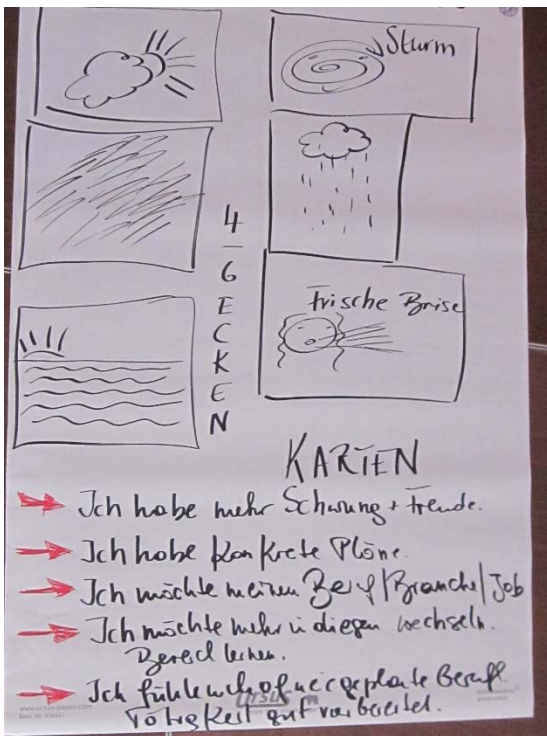 Sturm
4
–
6
E
C
K
E
N
Frische Brise
KARTEN
Ich habe mehr Schwung + Freude.
Ich habe konkrete Pläne.
Ich möchte meinen Beruf/Branche/Job
wechseln.
Ich möchte mehr in diesen
Bereich lernen.
Ich fühle mich auf geplante Berufl.
Tätigkeit gut vorbereitet.
www.ursus-paper.com
Ursus